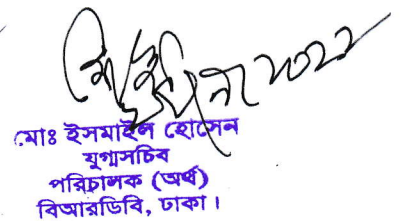 মোঃ ইসমাইল হোসেন
যুগ্মসচিব
পরিচালক (অর্থ)
বিআরডিবি, ঢাকা।